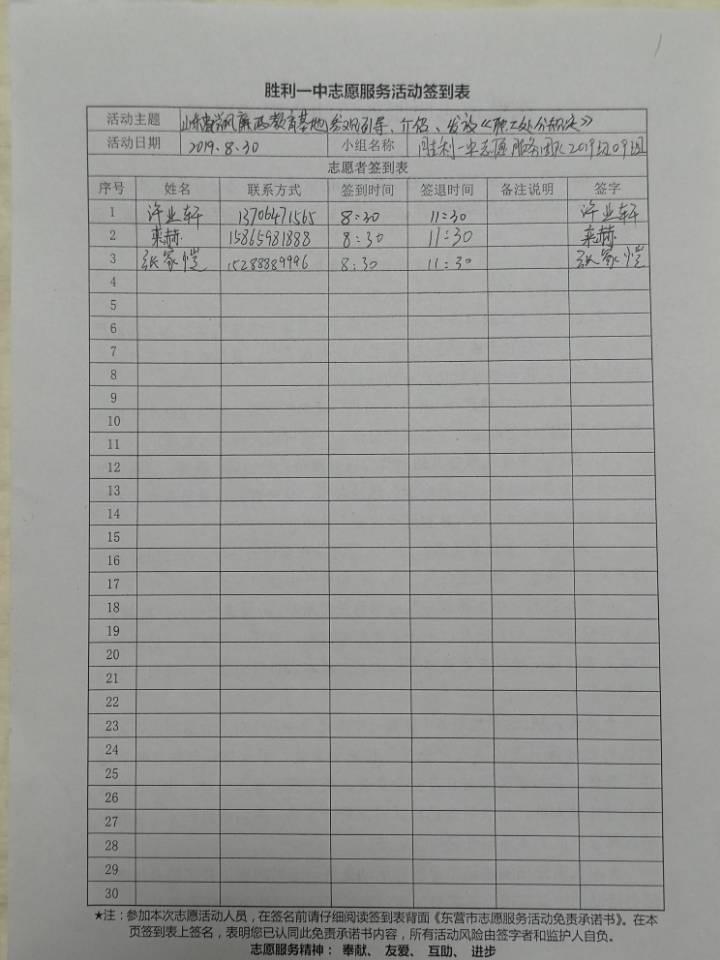 1
胜利一中志愿服务活动签到表
活动主题 山东省党风廉政教育基地参观引导、介绍、发放《职工处分规定》
活动日期 2019.8.30 小组名称 胜利一中志愿服务团队2019级09班
志愿者签到表
序号 姓名 联系方式 签到时间 签退时间 备注说明 签字
1 许业轩 13706471565 8:30 11:30 许业轩
2 来赫 15865981888 8:30 11:30 来赫
3 张家恺 15288889996 8:30 11:30 张家恺
4
5
6
7
8
9
10
11
12
13
14
15
16
17
18
19
20
21
22
23
24
25
26
27
28
29
30
★注：参加本次志愿活动人员，在签名前请仔细阅读签到表背面《东营市志愿服务活动免责承诺书》。在本
页签到表上签名，表明您已认同此免责承诺书内容，所有活动风险由签字者和监护人自负。
志愿服务精神： 奉献、 友爱、 互助、 进步